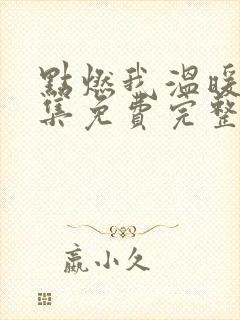 點燃我溫暖
集免費完整
嬴小久